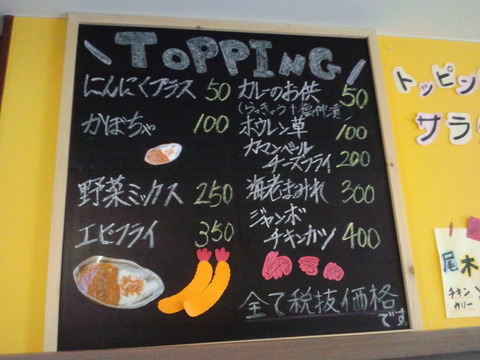 TOPPING
にんにくプラス 50
かぼちゃ 100
野菜ミックス 250
エビフライ 350
カレーのお供 50
(らっきょう+福神漬)
ホウレン草 100
カマンベール
チーズフライ 200
海老まみれ 300
ジャンボ
チキンカツ 400
全て税抜価格
です
トッピン
サラ
尾木
チキン
カリー